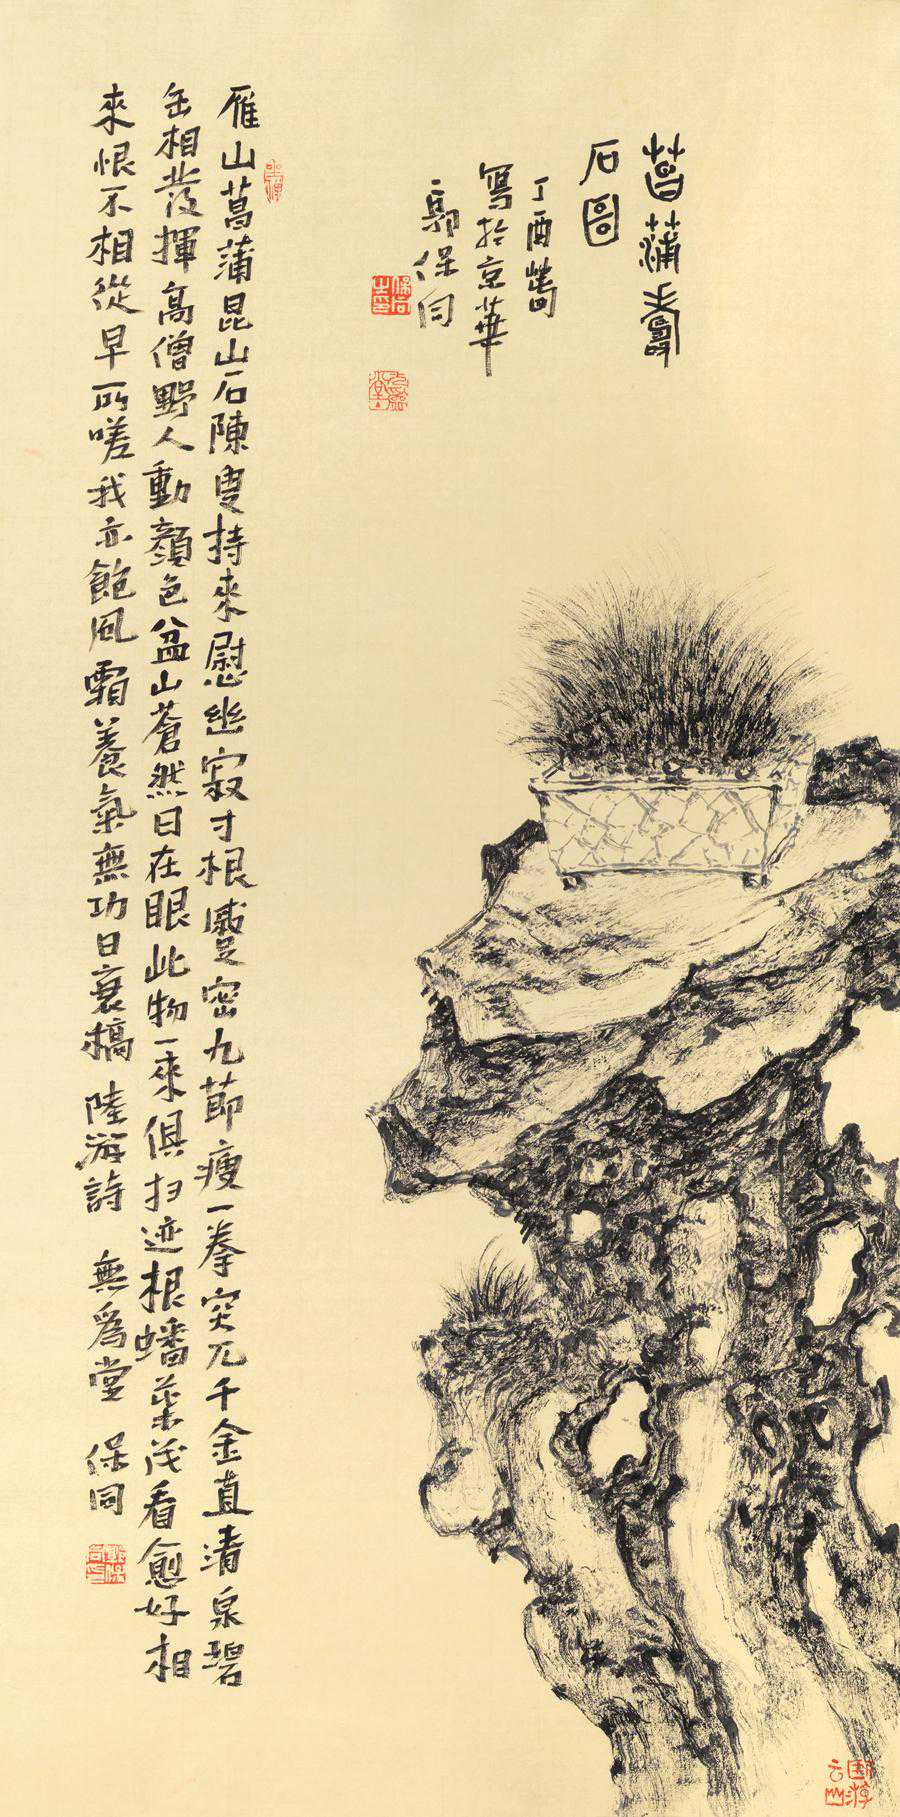 菖蒲壽
石圖
丁酉春
寫於京華
郭保同
保同之印
雁山菖蒲昆山石陳叟持來慰幽寂寸根蹙密九節瘦一拳突兀千金直清泉碧
缶相發揮高僧野人動顏色盆山蒼然日在眼此物一來俱扫迹根蟠葉茂看愈好相
來恨不相從早所嗟我亦飽風霜養氣無功日衰槁 陸游詩 無爲堂 保同